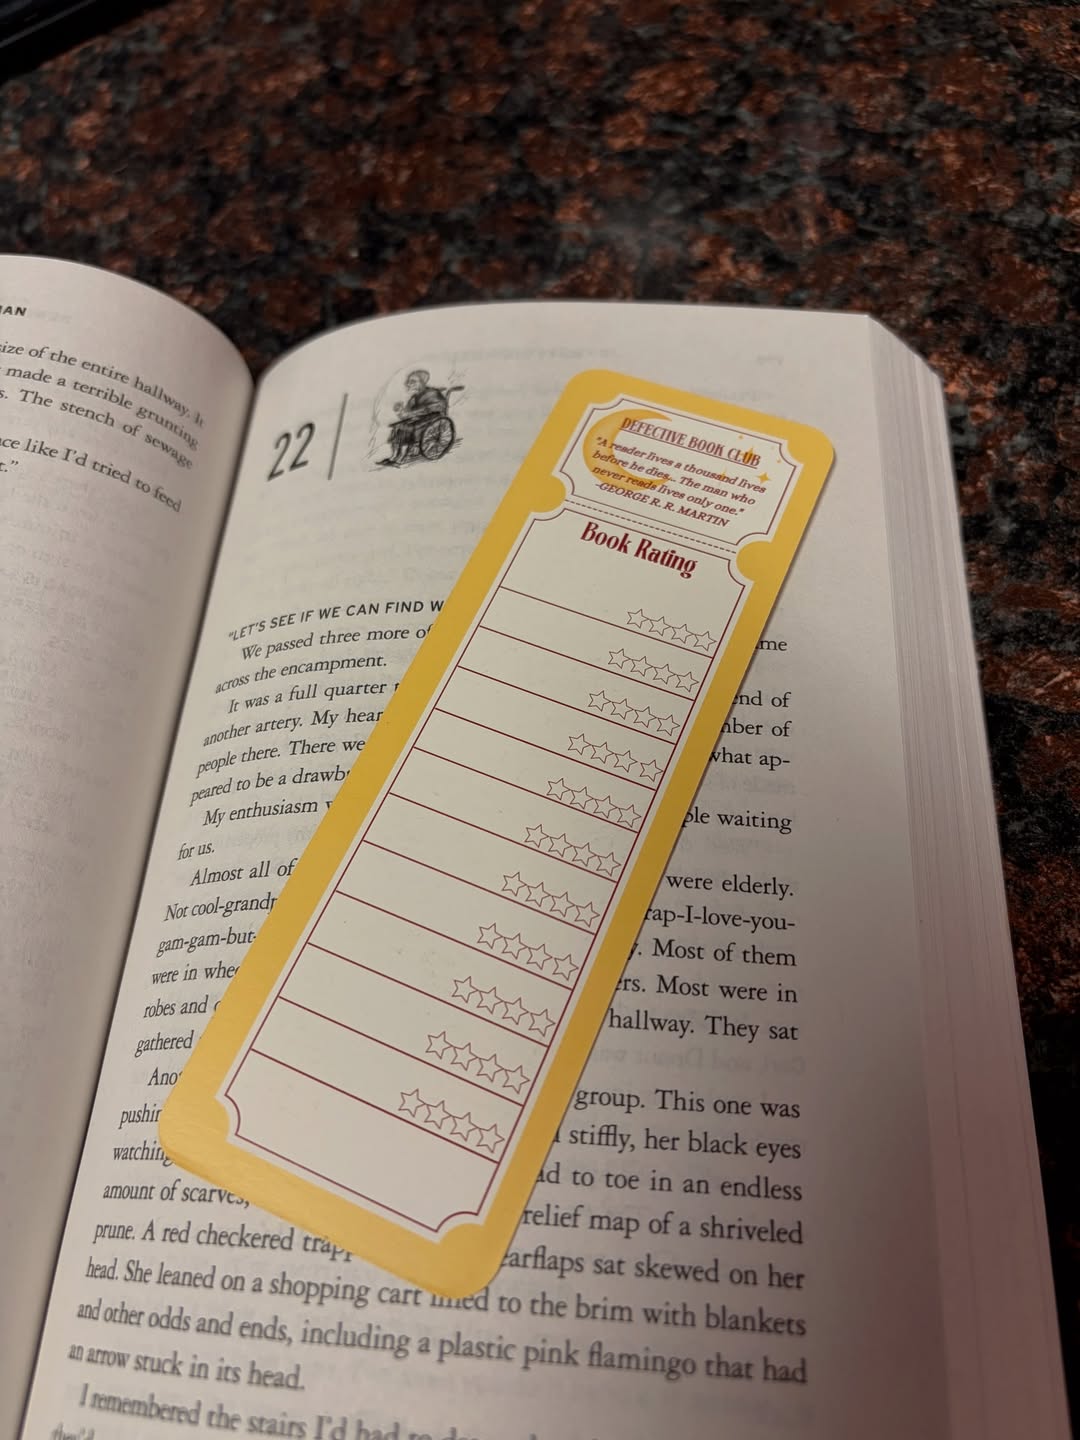 MAN
size of the entire hallway. It
made a terrible grunting
s. The stench of sewage
ce like I'd tried to feed
t."
22
"LET'S SEE IF WE CAN FIND W
We passed three more of
me
across the encampment.
It was a full quarter
end of
another artery. My hear
mber of
people there. There we
what ap-
peared to be a drawb
My enthusiasm w
ple waiting
for us.
Almost all of
were elderly.
Not cool-grandp
rap-I-love-you-
gam-gam-but-
y. Most of them
were in whee
ers. Most were in
robes and
hallway. They sat
gathered
Ano
group. This one was
pushin
stiffly, her black eyes
watching
ad to toe in an endless
amount of scarves,
relief map of a shriveled
prune. A red checkered trapp
earflaps sat skewed on her
head. She leaned on a shopping cart filled to the brim with blankets
and other odds and ends, including a plastic pink flamingo that had
an arrow stuck in its head.
I remembered the stairs I'd had to
they'd
DEFECTIVE BOOK CLUB
"A reader lives a thousand lives
before he dies... The man who
never reads lives only one."
-GEORGE R. R. MARTIN
Book Rating